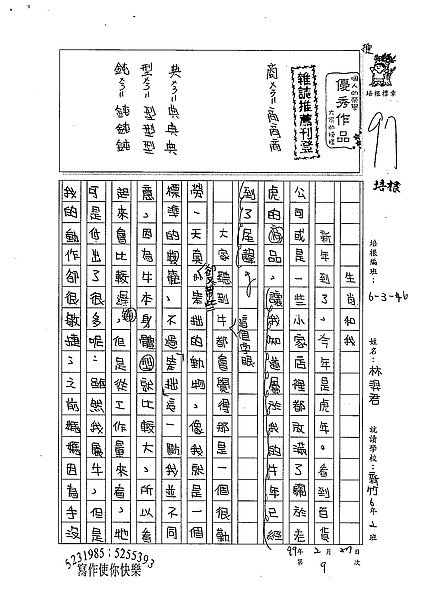 97
培根標章
個人的榮譽
優秀作品
大家的榜樣
雜誌推薦刊登
商ㄨㄕ=商商商
典ㄨㄕ=典典典
型ㄨㄕ=型型型
鈍ㄨㄕ=鈍鈍鈍
培根
培根編班：6-3-46
姓名：林羿君
就讀學校：新竹6年2班
99年2月27日
第9次
生肖和我
新年到了，今年是虎年。看到百貨
公司或是一些小家店裡都放滿了關於老
虎的商品，讓我知道屬於我的牛年已經
到了尾聲。
大家聽到牛都會覺得那是一個很勤
這個字眼
勞、天真卻又帶點笨拙的動物，像我就是一個
標準的典範。不過笨拙這一點我並不同
意，因為牛本身體型就比較大，所以看
起來會比較遲鈍。但是從工作量來看，牠
可是付出了很多呢！雖然我屬牛，但是
我的動作卻很敏捷。之前媽媽因為手沒
5231985；5255393
寫作使你快樂